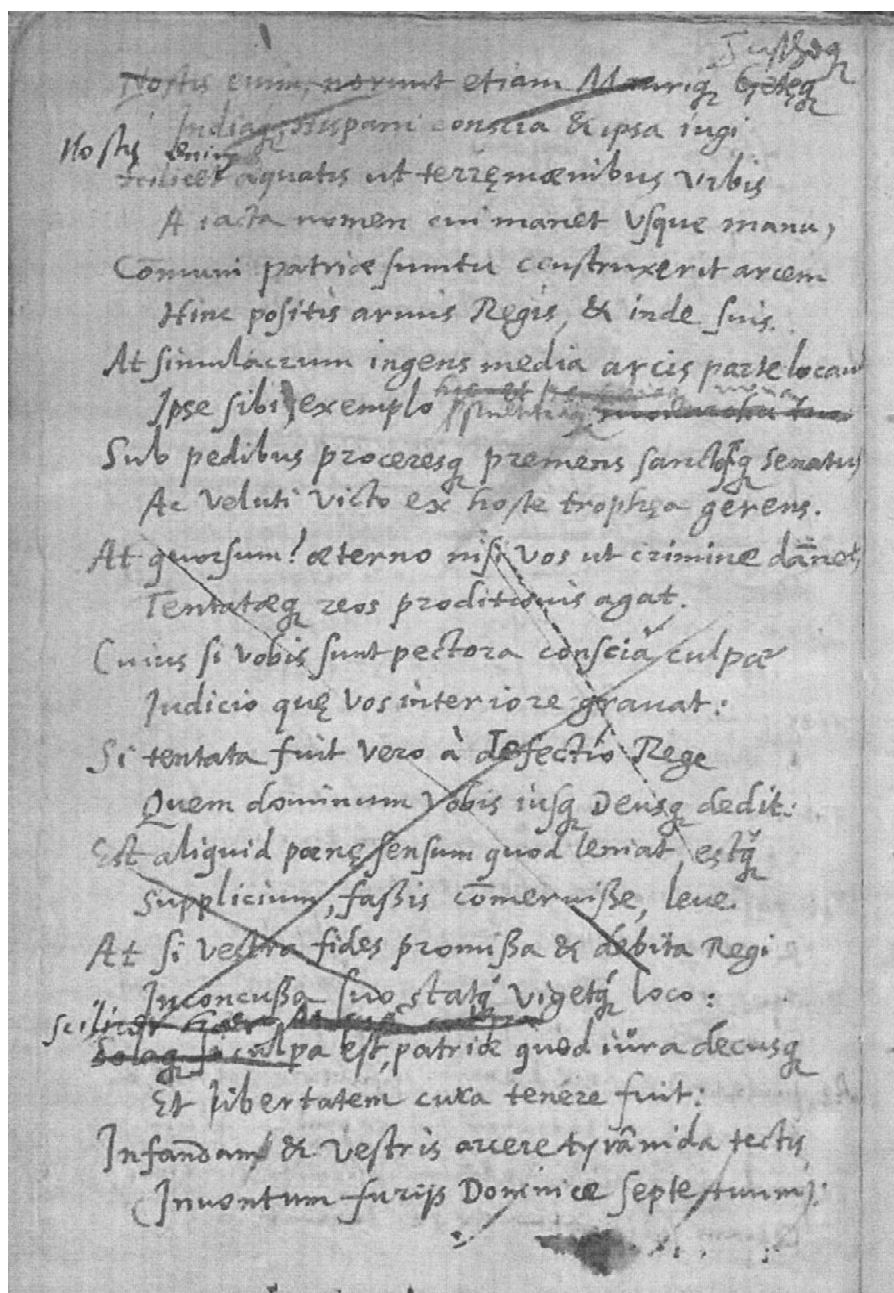 Nostis enim, norunt etiam Mauriq; Getęq;
Indiaq; Hispani conscia & ipsa iugi
Nostis enim
scilicet aquatis ut terrę mœnibus Vrbis
A iacta nomen cui manet Vsque manu,
Cōmuni patriæ sumtu construxerit arcem
Hinc positis armis Regis, & inde suis.
At simulacrum ingens media arcis parte locauit
Ipse sibi, exemplo
Sub pedibus proceresq; premens sanctosq; Senatus
Ac veluti victo ex hoste trophęa gerens.
At quorsum? æterno nisi vos ut crimine dānet,
Tentatæq; reos proditionis agat.
Cuius si vobis sunt pectora conscia culpæ
Iudicio quę vos interiore grauat:
Si tentata fuit vero à defectio Rege
Quem dominum vobis iusq; Deusq; dedit:
Est aliquid pœnę sensum quod leniat, estq;
Supplicium, faßis cōmeruiße, leue.
At si vestra fides promißa & debita Regi
Inconcußa suo statq; vigetq; loco:
scilicet
Solaq; si culpa est, patriæ quod iura decusq;
Et libertatem cura tenere fuit:
Infandam & vestris arcere tyrānida tectis
(Inuentum furijs Dominicæ septemtuum):